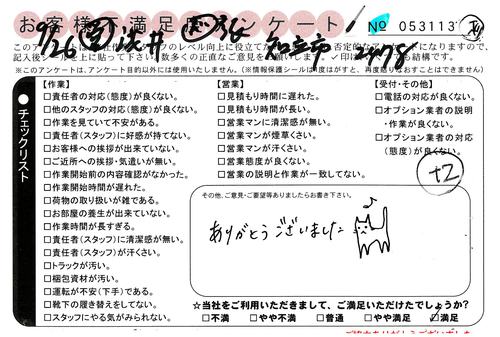 お客様ご満足度アンケート № 053113
9/26
このアンケートは、
記入後シールを上に貼って下さい。数多くの正直なご意見をお願いします。
※このアンケートは、アンケート目的以外には使用いたしません。(※情報保護シールは1度はがすと、再度貼りなおすことはできません)
チェックリスト
【作業】
□責任者の対応(態度)が良くない。
□他のスタッフの対応(態度)が良くない。
□作業を見ていて不安がある。
□責任者(スタッフ)に好感が持てない。
□お客様への挨拶が出来ていない。
□ご近所への挨拶・気遣いが無い。
□作業開始前の内容確認がなかった。
□作業開始時間が遅れた。
□荷物の取り扱いが雑である。
□お部屋の養生が出来ていない。
□作業時間が長すぎる。
□責任者(スタッフ)に清潔感が無い。
□責任者(スタッフ)が汗くさい。
□トラックが汚い。
□梱包資材が汚い。
□運転が不安(下手)である。
□靴下の履き替えをしてない。
□スタッフにやる気がみられない。
【営業】
□見積もり時間に遅れた。
□見積もり時間が長い。
□営業マンに清潔感が無い。
□営業マンが煙草くさい。
□営業マンが汗くさい。
□営業態度が良くない。
□営業の説明と作業が一致してない。
【受付・その他】
□電話の対応が良くない。
□オプション業者の説明
・作業が良くない。
□オプション業者の対応
(態度)が良くない。
+2
その他、ご意見・ご要望等ありましたらお書き下さい。
ありがとうございました ♪
☆当社をご利用いただきまして、ご満足いただけたでしょうか?
□不満 □やや不満 □普通 □やや満足 □満足